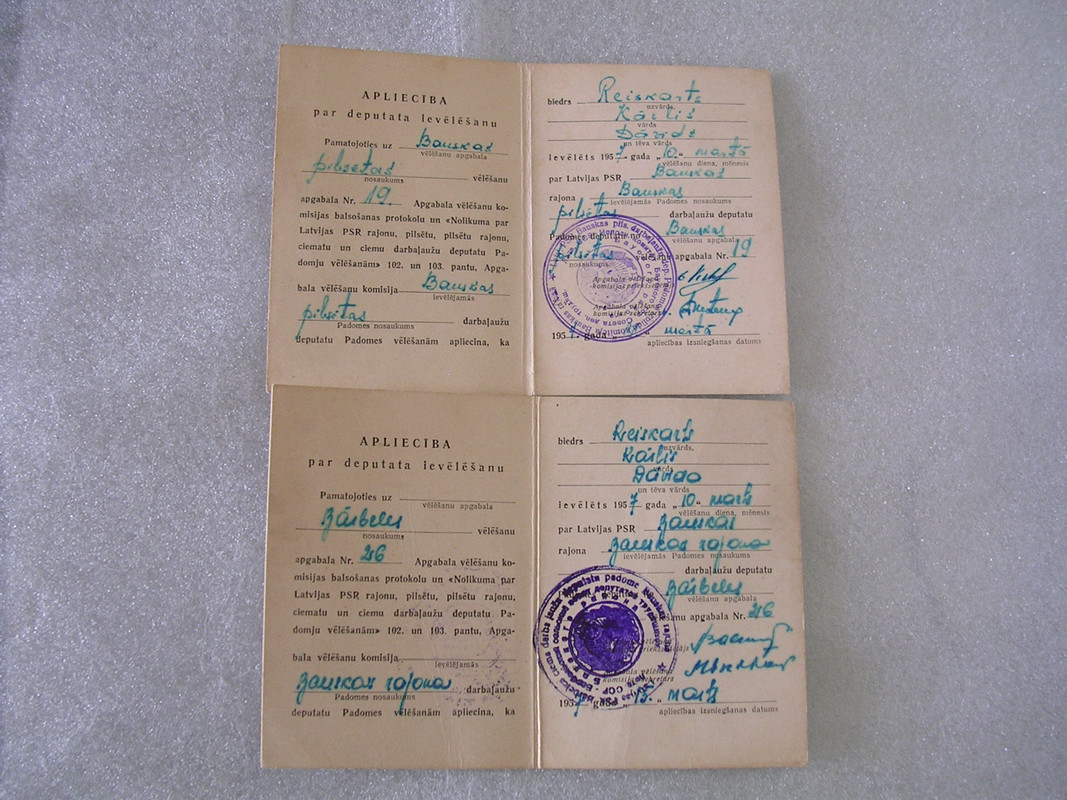 APLIECĪBA
par deputata ievēlēšanu
Pamatojoties uz Bauskas
vēlēšanu apgabala
pilsētas vēlēšanu
nosaukums
apgabala Nr. 19. Apgabala vēlēšanu ko-
misijas balsošanas protokolu un «Nolikuma par
Latvijas PSR rajonu, pilsētu, pilsētu rajonu,
ciematu un ciemu darbaļaužu deputatu Pa-
domju vēlēšanām» 102. un 103. pantu, Apga-
bala vēlēšanu komisija Bauskas
ievēlējamās
pilsētas darbaļaužu
Padomes nosaukums
deputatu Padomes vēlēšanām apliecina, ka
biedrs Reiskarts
uzvārds,
Kārlis
vārds
Dāvids
un tēva vārds
ievēlēts 1957 gada „10.“ martā
vēlēšanu diena, mēnesis
par Latvijas PSR Bauskas
rajona Bauskas
ievēlējamās Padomes nosaukums
pilsētas darbaļaužu deputatu
Padomes deputatu no Bauskas
vēlēšanu apgabala
pilsētas vēlēšanu apgabala Nr. 19
nosaukums
Apgabala vēlēšanu
komisijas priekšsēdētājs
Apgabala vēlēšanu
komisijas sekretārs
1957. gada martā
apliecības izsniegšanas datums
APLIECĪBA
par deputata ievēlēšanu
Pamatojoties uz
vēlēšanu apgabala
Bārbeles vēlēšanu
nosaukums
apgabala Nr. 26 Apgabala vēlēšanu ko-
misijas balsošanas protokolu un «Nolikuma par
Latvijas PSR rajonu, pilsētu, pilsētu rajonu,
ciematu un ciemu darbaļaužu deputatu Pa-
domju vēlēšanām» 102. un 103. pantu, Apga-
bala vēlēšanu komisija
ievēlējamās
Bauskas rajona darbaļaužu
Padomes nosaukums
deputatu Padomes vēlēšanām apliecina, ka
biedrs Reiskarts
uzvārds,
Kārlis
vārds
Dāvida
un tēva vārds
ievēlēts 1957 gada „10.“ martā
vēlēšanu diena, mēnesis
par Latvijas PSR Bauskas
rajona Bauskas rajona
ievēlējamās Padomes nosaukums
darbaļaužu deputatu
Bārbeles
vēlēšanu apgabala
vēlēšanu apgabala Nr. 26
1957. gada martā
apliecības izsniegšanas datums